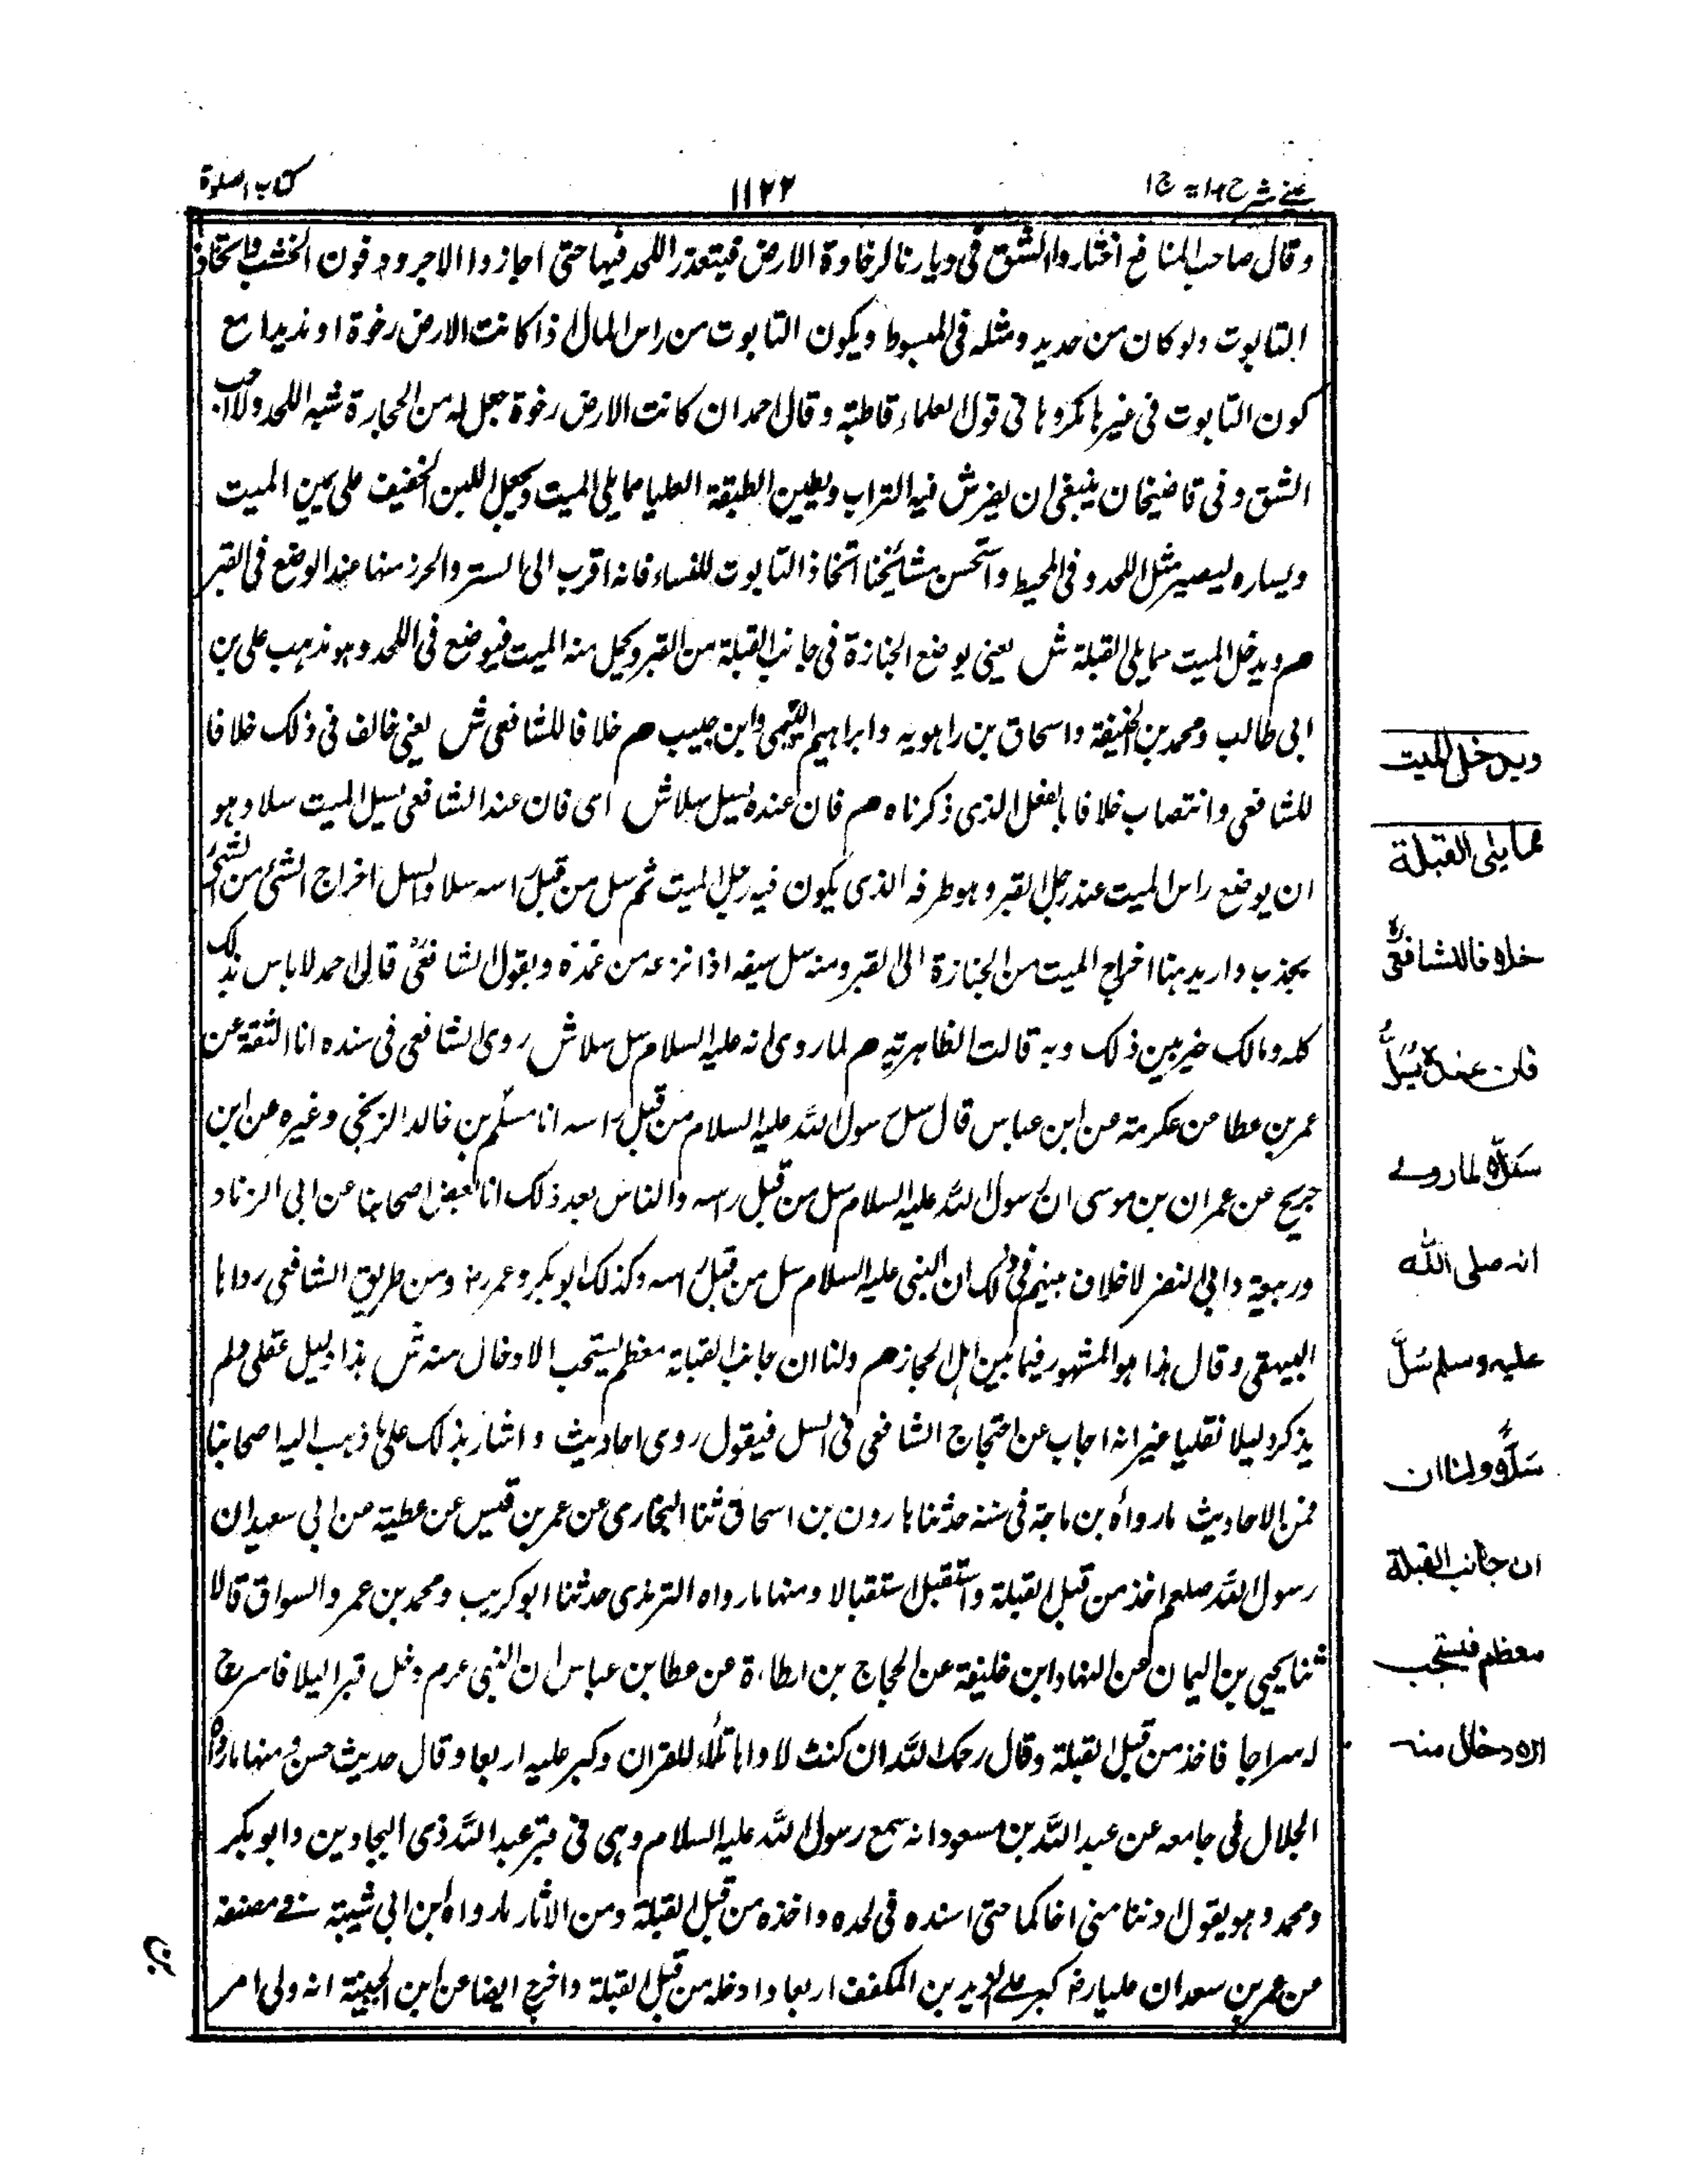 عينى شرح هداية ج ١
١١٢٢
كتاب الصلوة
وقال صاحب المنافع اختاروا الشق فى ديارنا لرخاوة الارض فيتعذر اللحد فيها حتى اجازوا الاجر ودفون الخشب واتخاذ
التابوت ولو كان من حديد ومثله فى المبسوط ويكون التابوت من راس المال اذا كانت الارض رخوة او نديدا مع
كون التابوت فى غيرها مكروها فى قول العلماء قاطبة وقال احمد ان كانت الارض رخوة جعل له من الحجارة شبه اللحد ولا احب
الشق وفى قاضيخان ينبغى ان يفرش فيه التراب ويطين الطبقة العليا مما يلى الميت ويجعل اللبن الخفيف على يمين الميت
ويساره ليصير مثل اللحد وفى المحيط واستحسن مشائخنا اتخاذ التابوت للنساء فانه اقرب الى الستر والحرز منها عند الوضع فى القبر
صم ويدخل الميت مما يلى القبلة ش يعنى يوضع الجنازة فى جانب القبلة من القبر ويحمل منه الميت فيوضع فى اللحد وهو مذهب على بن
ابى طالب ومحمد بن الحنيفة واسحاق بن راهويه وابراهيم التيمى وابن حبيب صم خلافا للشافعى ش يعنى خالف فى ذلك خلافا
للشافعى وانتصاب خلافا بالفعل الذى ذكرناه صم فان عنده يسل سلا ش اى فان عند الشافعى يسل الميت سلا وهو
ان يوضع راس الميت عند رجل القبر وهو طرفه الذى يكون فيه رجل الميت ثم سل من قبل راسه سلا والسل اخراج الشئ من الشئ
بجذب واريد هنا اخراج الميت من الجنازة الى القبر ومنه سل سيفه اذا نزعه من غمده وبقول الشافعىؒ قال احمد لاباس بذلك
كله ومالك خير بين ذلك وبه قالت الظاهرية صم لما روى انه عليه السلام سل سلا ش روى الشافعى فى سنده انا الثقة عن
عمر بن عطا عن عكرمة عن ابن عباس قال سل رسول الله عليه السلام من قبل راسه انا مسلم بن خالد الزنجى وغيره عن ابن
جريج عن عمران بن موسى ان رسول الله عليه السلام سل من قبل راسه والناس بعد ذلك انا بعض اصحابنا عن ابى الزناد
وربيعة وابى النضر لا خلاف بينهم فى ذلك ان النبى عليه السلام سل من قبل راسه وكذلك ابو بكر وعمر رض ومن طريق الشافعى رواها
البيهقى وقال هذا هو المشهور فيما بين اهل الحجاز صم ولنا ان جانب القبلة معظم يستحب الادخال منه ش هذا دليل عقلى ولم
يذكر دليلا نقليا غير انه اجاب عن احتجاج الشافعى فى السل فيقول روى احاديث واشار بذلك على ما ذهب اليه اصحابنا
فمن الاحاديث ما رواه بن ماجة فى سننه حدثنا هارون بن اسحاق ثنا البخارى عن عمر بن قيس عن عطية عن ابى سعيد ان
رسول الله صلعم اخذ من قبل القبلة واستقبل استقبالا ومنها ما رواه الترمذى حدثنا ابو كريب ومحمد بن عمر والسواق قالا
ثنا يحيى بن اليمان عن المنهاد ابن خليفة عن الحجاج بن ارطاءة عن عطا بن عباس ان النبى عرم دخل قبرا ليلا فاسرج
له سراجا فاخذ من قبل القبلة وقال رحمك الله ان كنت لاواها تلاء للقران وكبر عليه اربعا وقال حديث حسن ومنها ما رواه
الجلال فى جامعه عن عبد الله بن مسعود انه سمع رسول الله عليه السلام وهى فى قبر عبد الله ذى البجادين وابو بكر
ومحمد وهو يقول دننا منى اخاكما حتى اسنده فى لحده واخذه من قبل القبلة ومن الاثار ما رواه ابن ابى شيبة فى مصنفه
عن عمر بن سعد ان عليا رض كبر على يزيد بن المكفف اربعا وادخله من قبل القبلة واخرج ايضا عن ابن الحبيبة انه ولى امر
ويدخل الميت
مما يلى القبلة
خلافا للشافعىؒ
فان عنده يُسَلُّ
سَلًّا لما روى
انه صلى الله
عليه وسلم سُلَّ
سَلًّا ولنا ان
ان جانب القبلة
معظم فيستحب
الادخال منه